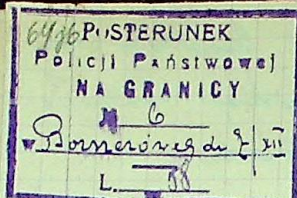 6486 POSTERUNEK
Policji Państwowej
NA GRANICY
№ 6
w dn 7/XII
L. 38